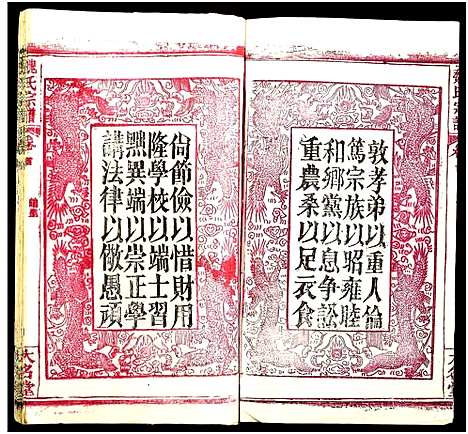 敦孝弟以重人倫
篤宗族以昭雍睦
和鄉黨以息爭訟
重農桑以足衣食
尙節儉以惜財用
隆學校以端士習
黜異端以崇正學
講法律以儆愚頑
魏氏宗譜
卷首
大名堂